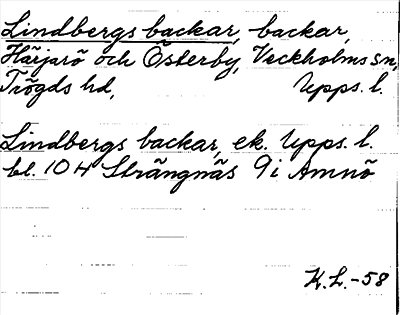 Lindbergs backar, backar,
Härjarö och Österby, Veckholms sn,
Trögds hd, Upps. l.
Lindbergs backar, ek. Upps. l.
bl. 104 Strängnäs 9 i Amnö
K.L.-58